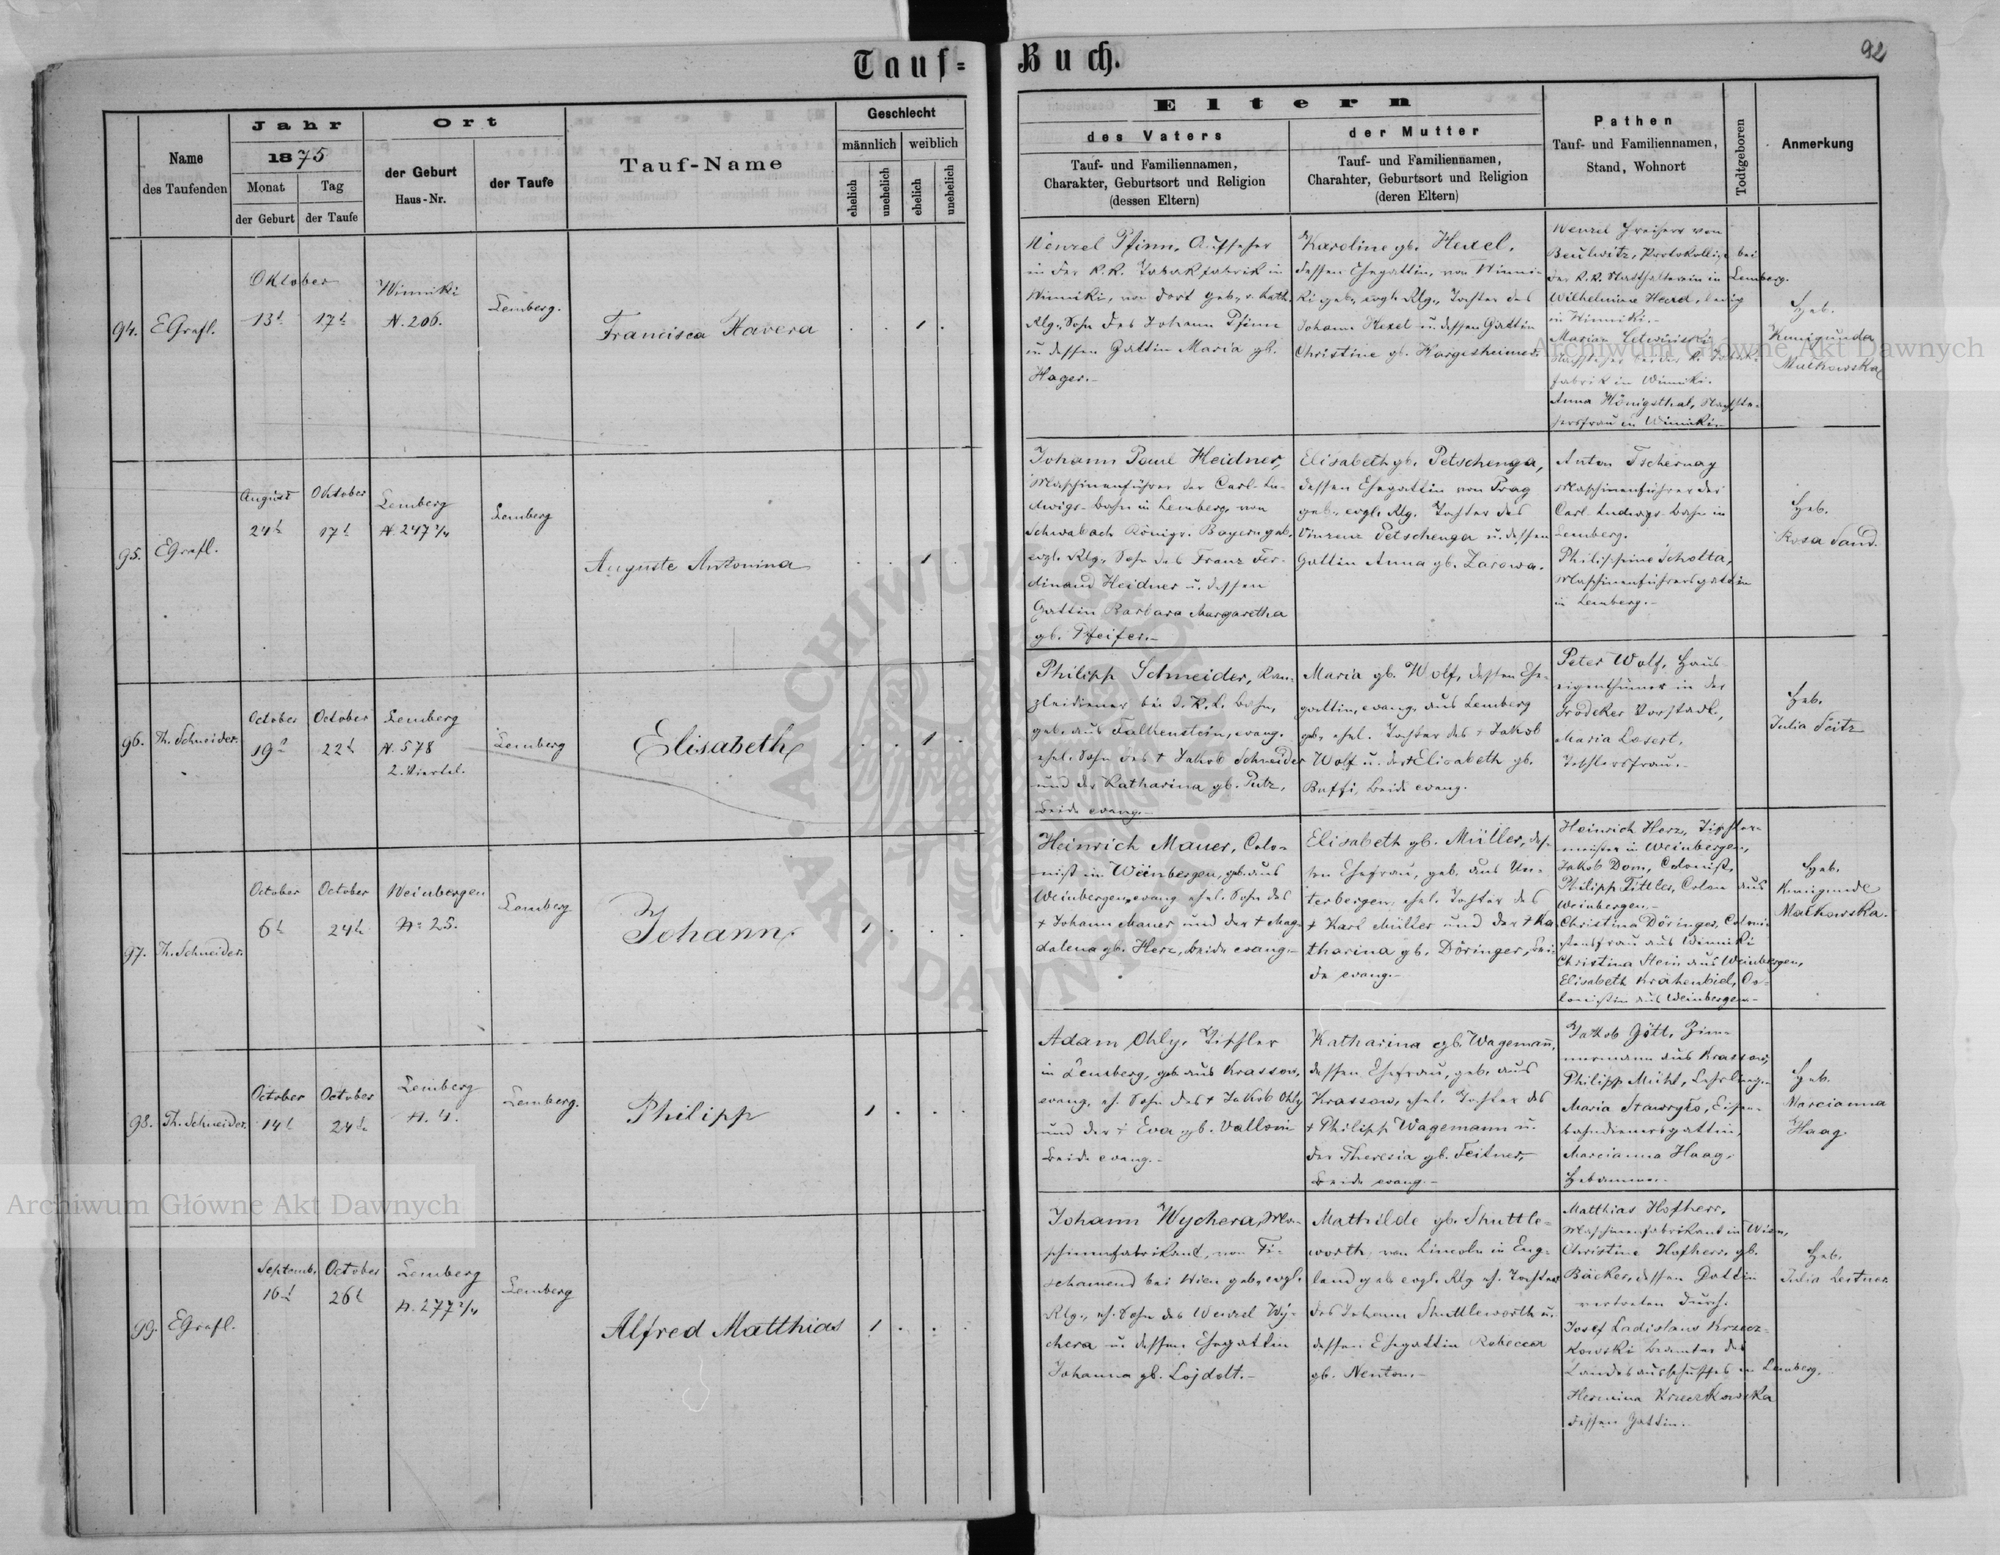 Tauf-Buch.
92
Name
des Taufenden
Jahr
1875
Monat
Tag
der Geburt
der Taufe
Ort
der Geburt
Haus-Nr.
der Taufe
Tauf-Name
Geschlecht
männlich
weiblich
ehelich
unehelich
ehelich
unehelich
Eltern
des Vaters
Tauf- und Familiennamen,
Charakter, Geburtsort und Religion
(dessen Eltern)
der Mutter
Tauf- und Familiennamen,
Charahter, Geburtsort und Religion
(deren Eltern)
Pathen
Tauf- und Familiennamen,
Stand, Wohnort
Todtgeboren
Anmerkung
94.
EGrafl.
Oktober
13t
17t
Winniki
N. 206.
Lemberg.
Francisca Xavera
1
Wenzel Pfinn, Aufseher
in der k.k. Tabakfabrik in
Winniki, von dort geb. r. kath.
Rlg., Sohn des Johann Pfinn
u. dessen Gattin Maria gb.
Hager.-
Karoline gb. Hexel,
dessen Ehegattin, von Winni-
ki geb., evgl. Rlg., Tochter des
Johann Hexel u. dessen Gattin
Christine gb. Hargesheimer.
Wenzel Freiherr von
Beulwitz, Protokollist bei
der k.k. Statthalterei in Lemberg.
Wilhelmine Head, ledig
in Winniki.-
Marian
fabrik in Winniki.
Anna Königsthal,
in Winniki.-
Heb.
Kunigunda
Malkowska
95.
EGrafl.
August
Oktober
24t
17t
Lemberg
N. 247 2/4
Lemberg
Auguste Antonina
1
Johann Paul Heidner,
Maschinenführer der Carl-Lu-
dwigs-Bahn in Lemberg, von
Schwabach Königr. Bayern geb.
evgl. Rlg., Sohn des Franz Fer-
dinand Heidner u. dessen
Gattin Barbara Margaretha
gb. Pfeifer.-
Elisabeth gb. Petschenga,
dessen Ehegattin von Prag
geb., evgl. Rlg. Tochter des
Vinzenz Petschenga u. dessen
Gattin Anna gb. Zarowa.
Anton Tschernay
Maschinenführer der
Carl Ludwigs-Bahn in
Lemberg.
Philippine Scholta,
Maschinenführersgattin
in Lemberg.-
Heb.
Rosa Sand.
96.
Th. Schneider.
October
October
19t
22t
Lemberg
N. 578
2. Viertel.
Lemberg
Elisabeth
1
Philipp Schneider, Kan-
zleidiener bei d. K. L. Bahn,
geb. aus Falkenstein, evang.
ehel. Sohn des † Jakob Schneider
und der Katharina gb. Putz,
beide evang.-
Maria gb. Wolf, dessen Ehe-
gattin, evang. aus Lemberg
geb., ehel. Tochter des † Jakob
Wolf u. der † Elisabeth gb.
Buffi, beide evang.
Peter Wolf, Haus-
eigenthümer in der
Grodeker Vorstadt,
Maria Losert,
Tischlersfrau.-
Heb.
Julia Seitz
97.
Th. Schneider.
October
October
6t
24t
Weinbergen
N: 25.
Lemberg
Johann
1
Heinrich Mauer, Colo-
nist in Weinbergen, geb. aus
Weinbergen, evang. ehel. Sohn des
† Johann Mauer und der † Mag-
dalena gb. Herz, beide evang.-
Elisabeth gb. Müller, des-
sen Ehefrau, geb. aus Un-
terbergen, ehel. Tochter des
† Karl Müller und der † Ka
tharina gb. Döringer, bei-
de evang.-
Heinrich Herz, Tischler-
meister in Weinbergen,
Jakob Dom, Colonist,
Philipp Tittler, Colon aus
Weinbergen.-
Christina Döringer, Coloni-
stensfrau aus Winniki
Christina Stein aus Weinbergen,
Elisabeth Krähenbiel, Co-
lonistin aus Weinbergen.-
Heb.
Kunigunde
Malkowska.
98.
Th. Schneider.
October
October
14t
24t
Lemberg
N. 4.
Lemberg.
Philipp
1
Adam Ohly, Tischler
in Lemberg, geb. aus Krassow,
evang. eh. Sohn des † Jakob Ohly
und der † Eva gb. Vallom
beide evang.-
Katharina gb. Wagemann,
dessen Ehefrau, geb. aus
Krassow, ehel. Tochter des
† Philipp Wagemann u.
der Theresia gb. Feitner,
beide evang.-
Jakob Gött, Zim-
mermann aus Krassow,
Philipp Mühl, Lehrling.-
Maria Stawryko, Eisen-
bahndienersgattin,
Marcianna Haag,
Hebamme.-
Heb.
Marcianna
Haag.
99.
EGrafl.
Septemb.
October
16t
26t
Lemberg
N. 277 2/4
Lemberg
Alfred Matthias
1
Johann Wychera, Ma-
schinenfabrikant, von Fi-
schamend bei Wien geb., evgl.
Rlg., eh. Sohn des Wenzel Wy-
chera u. dessen Ehegattin
Johanna gb. Lojdolt.-
Mathilde gb. Shuttle-
worth, von Lincoln in Eng-
land geb. evgl. Rlg. eh. Tochter
des Johann Shuttleworth u.
dessen Ehegattin Rebecca
gb. Newton.-
Matthias Hofherr,
Maschinenfabrikant in Wien,
Christine Hofherr gb.
Bäcker, dessen Gattin
vertreten durch.
Josef Ladislaus Krzecz-
kowski Beamter des
Landesausschusses in Lemberg.
Hermina Krzeczkowska
dessen Gattin.-
Heb.
Julia Leitner
Archiwum Główne Akt Dawnych
Archiwum Główne Akt Dawnych
ARCHIWUM GŁÓWNE AKT DAWNYCH